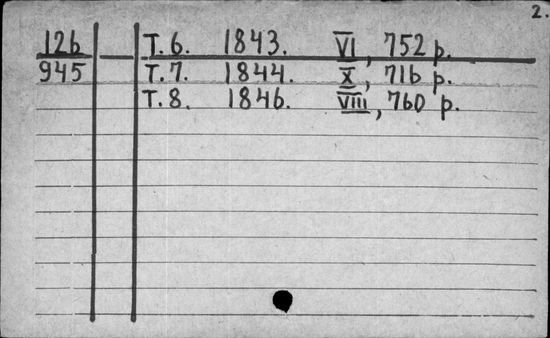 2.
126 T. 6. 1843. VI, 752 p.
945 T. 7. 1844. X, 716 p.
T. 8. 1846. VIII, 760 p.